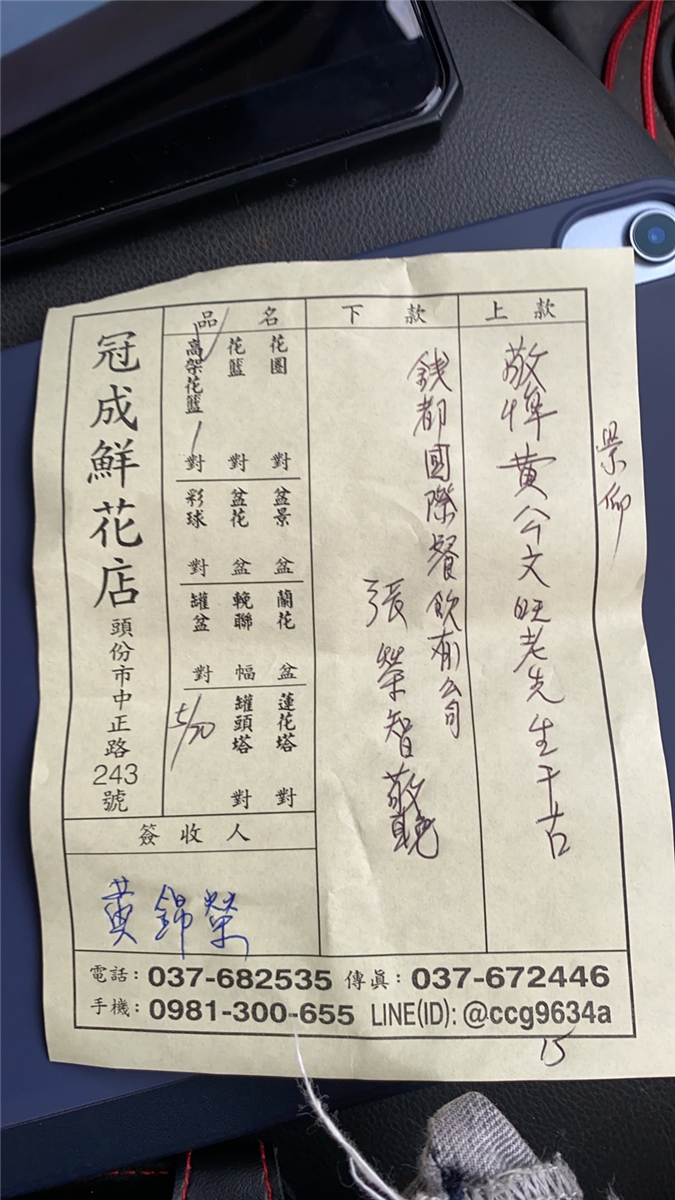 景仰
上款
敬悼黃公文旺老先生千古
下款
錢都國際餐飲有公司
張榮智敬輓
品名
花圈 對
花籃 對
高架花籃 1 對
盆景 盆
盆花 盆
彩球 對
蘭花 盆
輓聯 幅
罐盆 對
蓮花塔 對
罐頭塔 對
5/30
冠成鮮花店
頭份市中正路243號
簽收人
黃錦榮
電話：037-682535 傳真：037-672446
手機：0981-300-655 LINE(ID): @ccg9634a
15